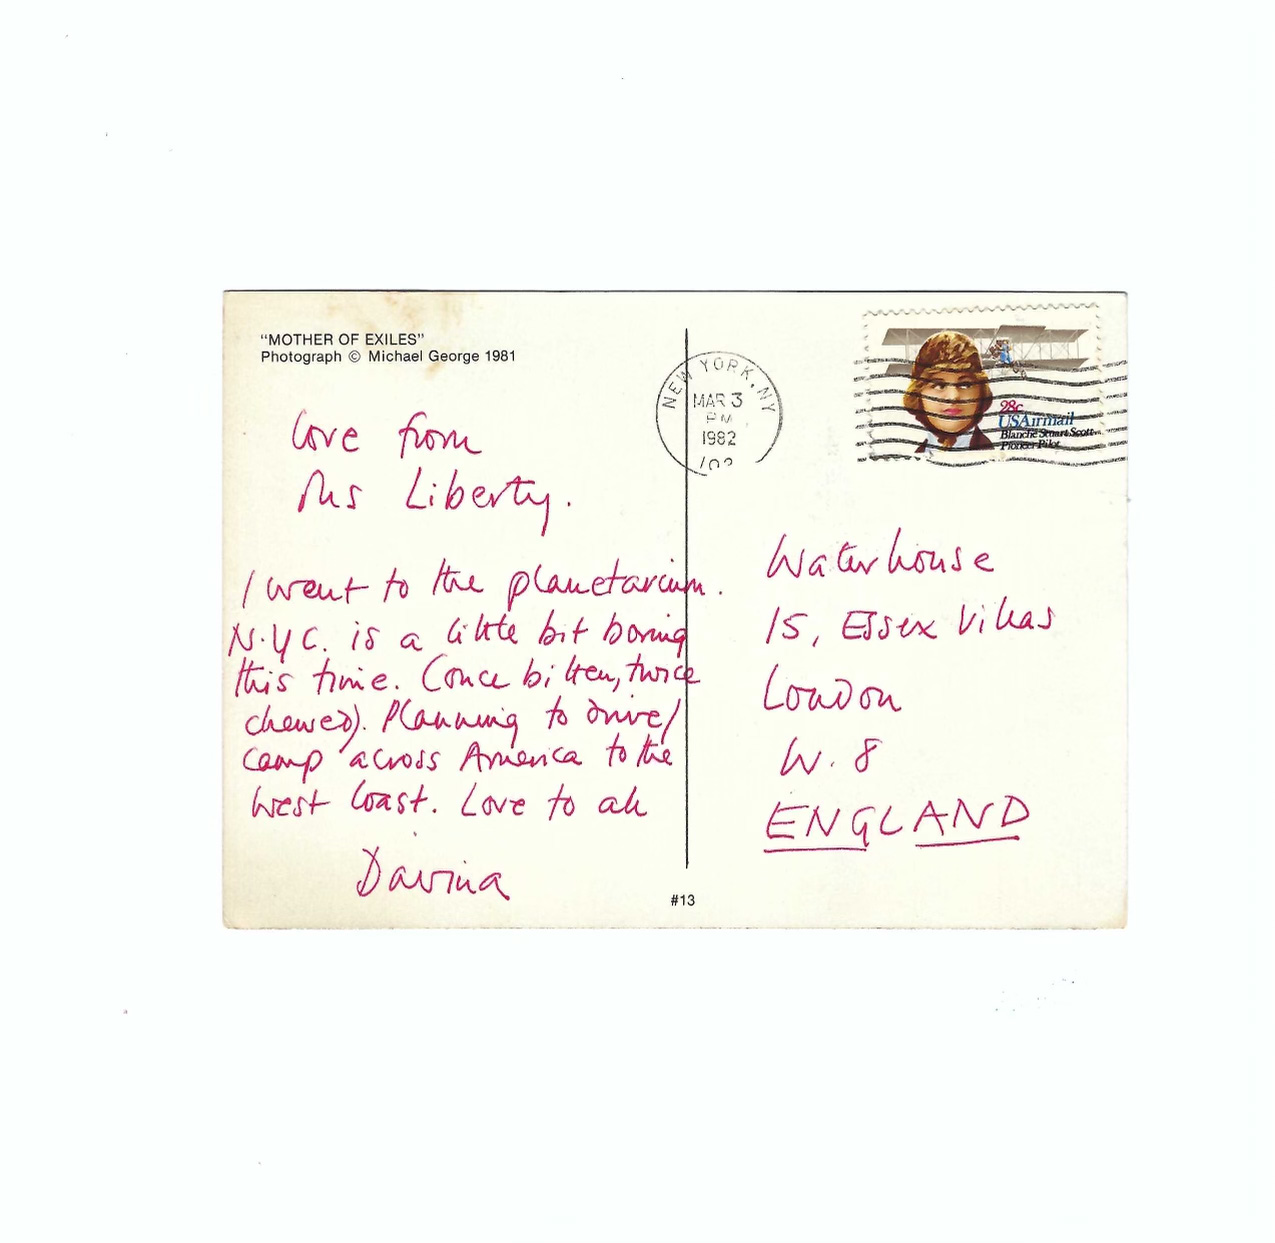 "MOTHER OF EXILES"
Photograph © Michael George 1981
Love from
Ms Liberty.
I went to the planetarium.
N.Y.C. is a little bit boring
this time. (Once bitten, twice
chewed). Planning to drive/
camp across America to the
West Coast. Love to all
Davina
#13
NEW YORK, NY
MAR 3
PM
1982
28c
USAirmail
Blanche Stuart Scott
Pioneer Pilot
Waterhouse
15, Essex Villas
London
W. 8
ENGLAND